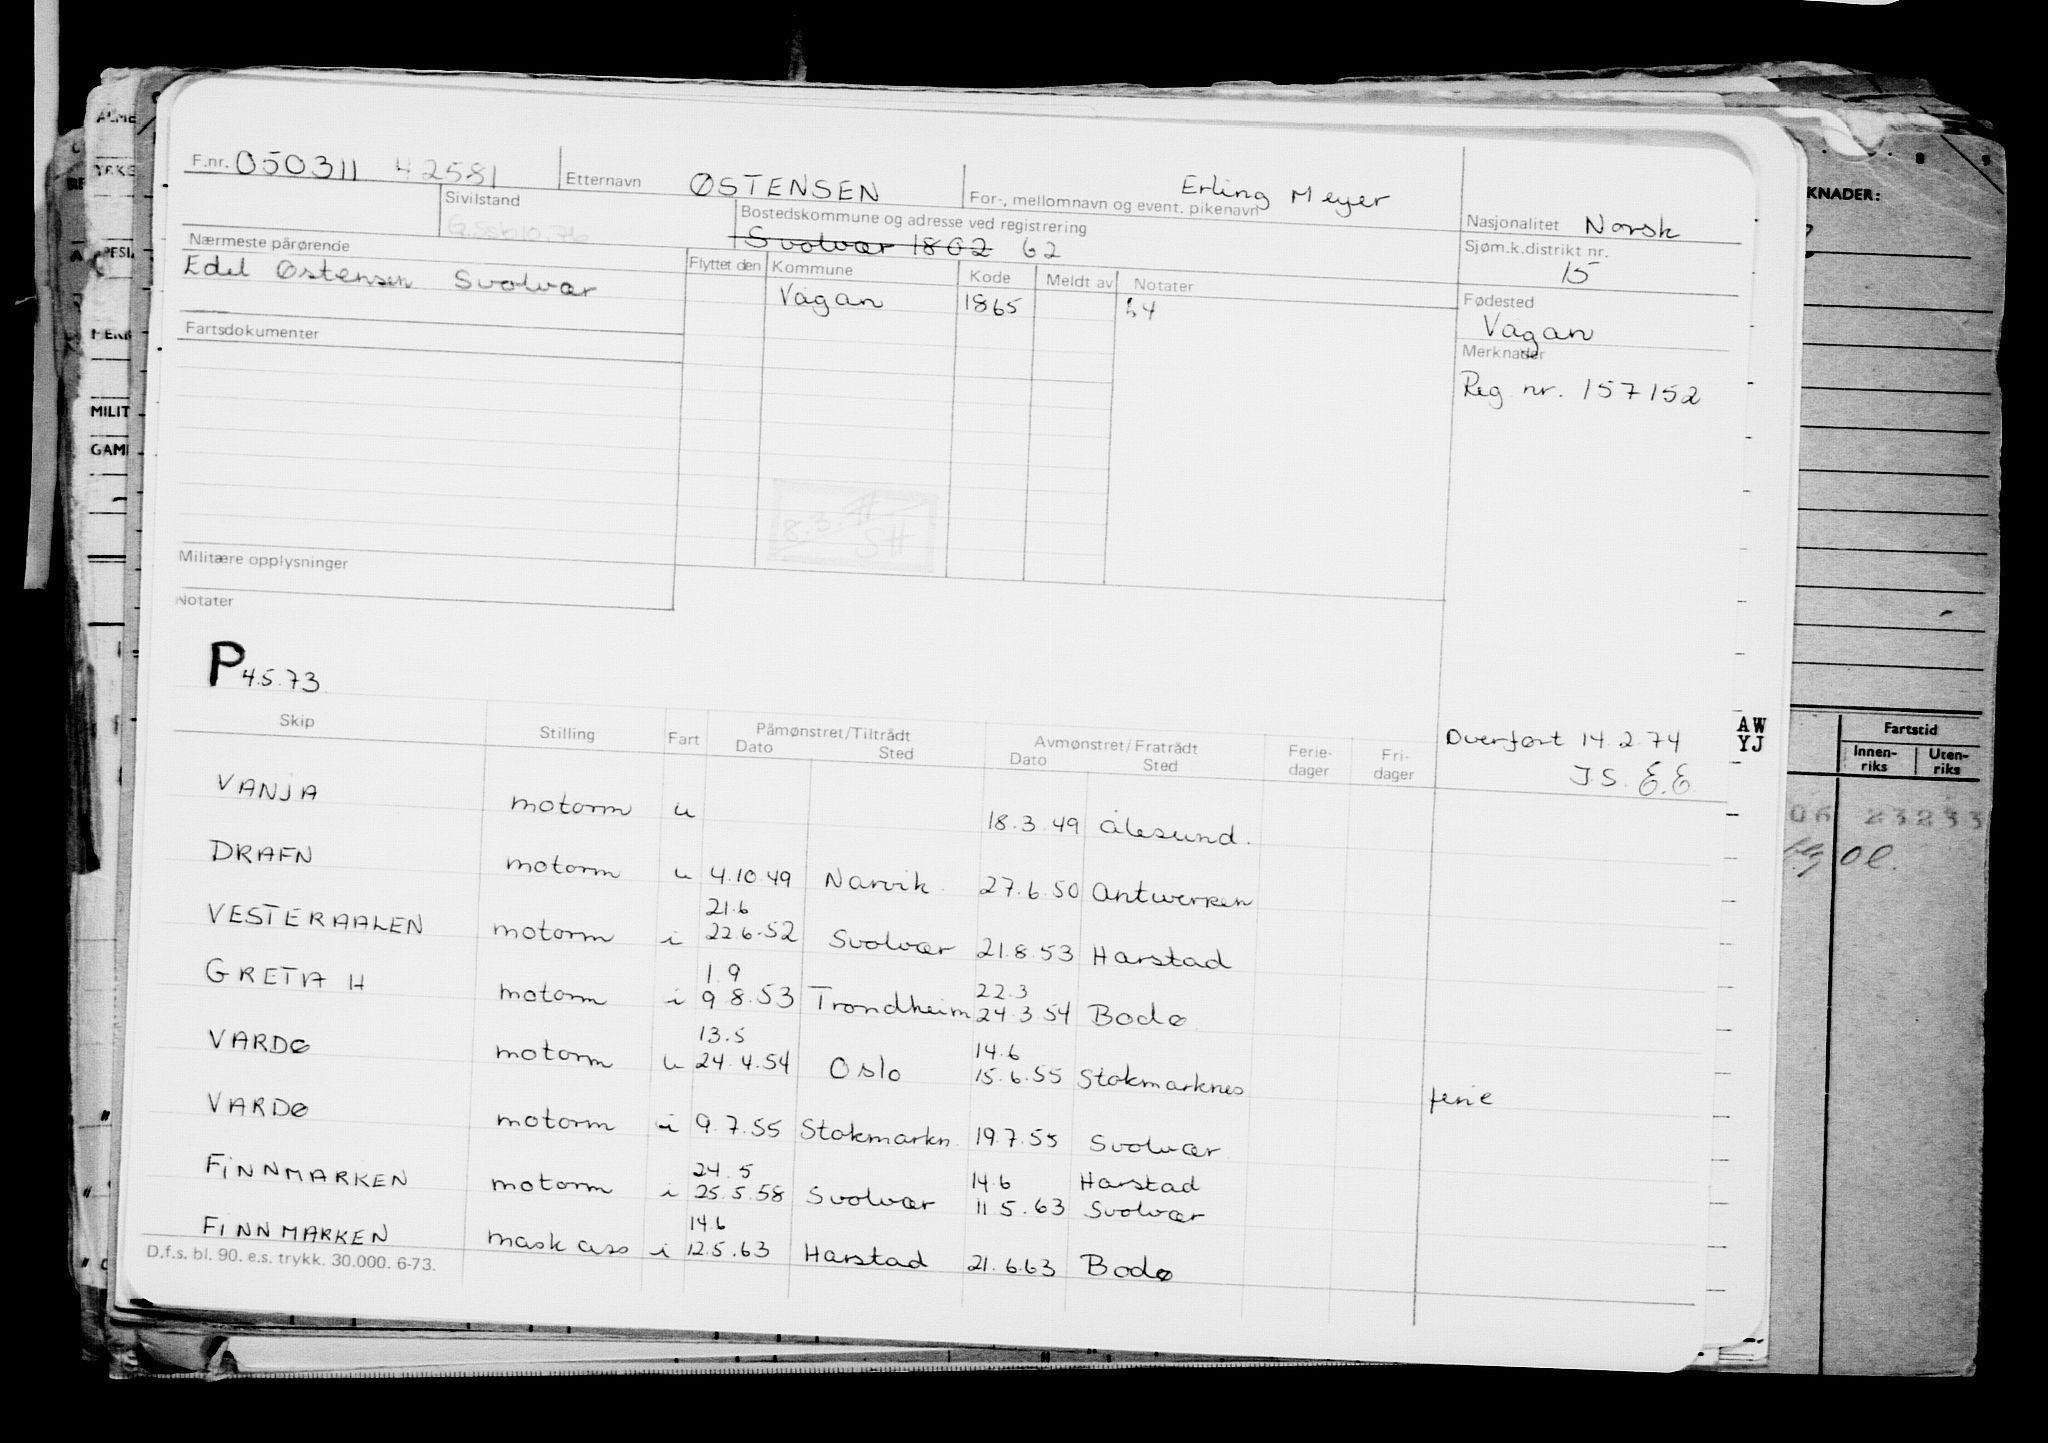 F.nr. 050311 42581 Etternavn ØSTENSEN For-, mellomnavn og event. pikenavn Erling Meyer
Nasjonalitet Norsk
Sivilstand
Bostedskommune og adresse ved registrering
Svolvær 1802 62
Sjøm.k.distrikt nr.
15
Nærmeste pårørende
Edel Østensen Svolvær
Flyttet den Kommune Kode Meldt av Notater
Vågan 1865 54
Fødested
Vågan
Fartsdokumenter
Merknader
Reg. nr. 157152
8.3.
SH
Militære opplysninger
Notater
P 4.5.73
Overført 14.2.74
J.S. E.E.
Skip Stilling Fart Påmønstret/Tiltrådt Avmønstret/Fratrådt Ferie- Fri-
Dato Sted Dato Sted dager dager
VANJA motorm u 18.3.49 Ålesund.
DRAFN motorm u 4.10.49 Narvik 27.6.50 Antwerpen
21.6
VESTERAALEN motorm i 22.6.52 Svolvær 21.8.53 Harstad
1.9 22.3
GRETA H motorm i 9.8.53 Trondheim 24.3.54 Bodø
13.5 14.6
VARDØ motorm u 24.4.54 Oslo 15.6.55 Stokmarknes ferie
VARDØ motorm i 9.7.55 Stokmarkn. 19.7.55 Svolvær
24.5 14.6 Harstad
FINNMARKEN motorm i 25.5.58 Svolvær 11.5.63 Svolvær
14.6
FINNMARKEN mask ass i 12.5.63 Harstad 21.6.63 Bodø
D.f.s. bl. 90. e.s. trykk. 30.000. 6-73.
AW
YJ
KNADER:
Fartstid
Innen-
riks
Uten-
riks
06 23233
MILIT
GAMI